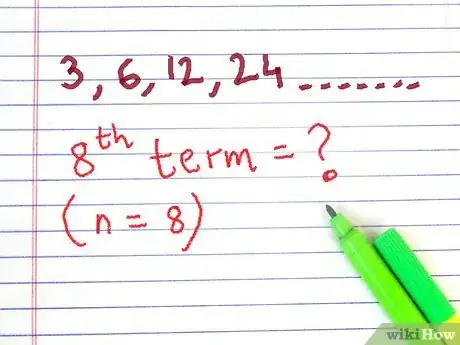 3, 6, 12, 24 .......
8th term = ?
(n = 8)
wikiHow